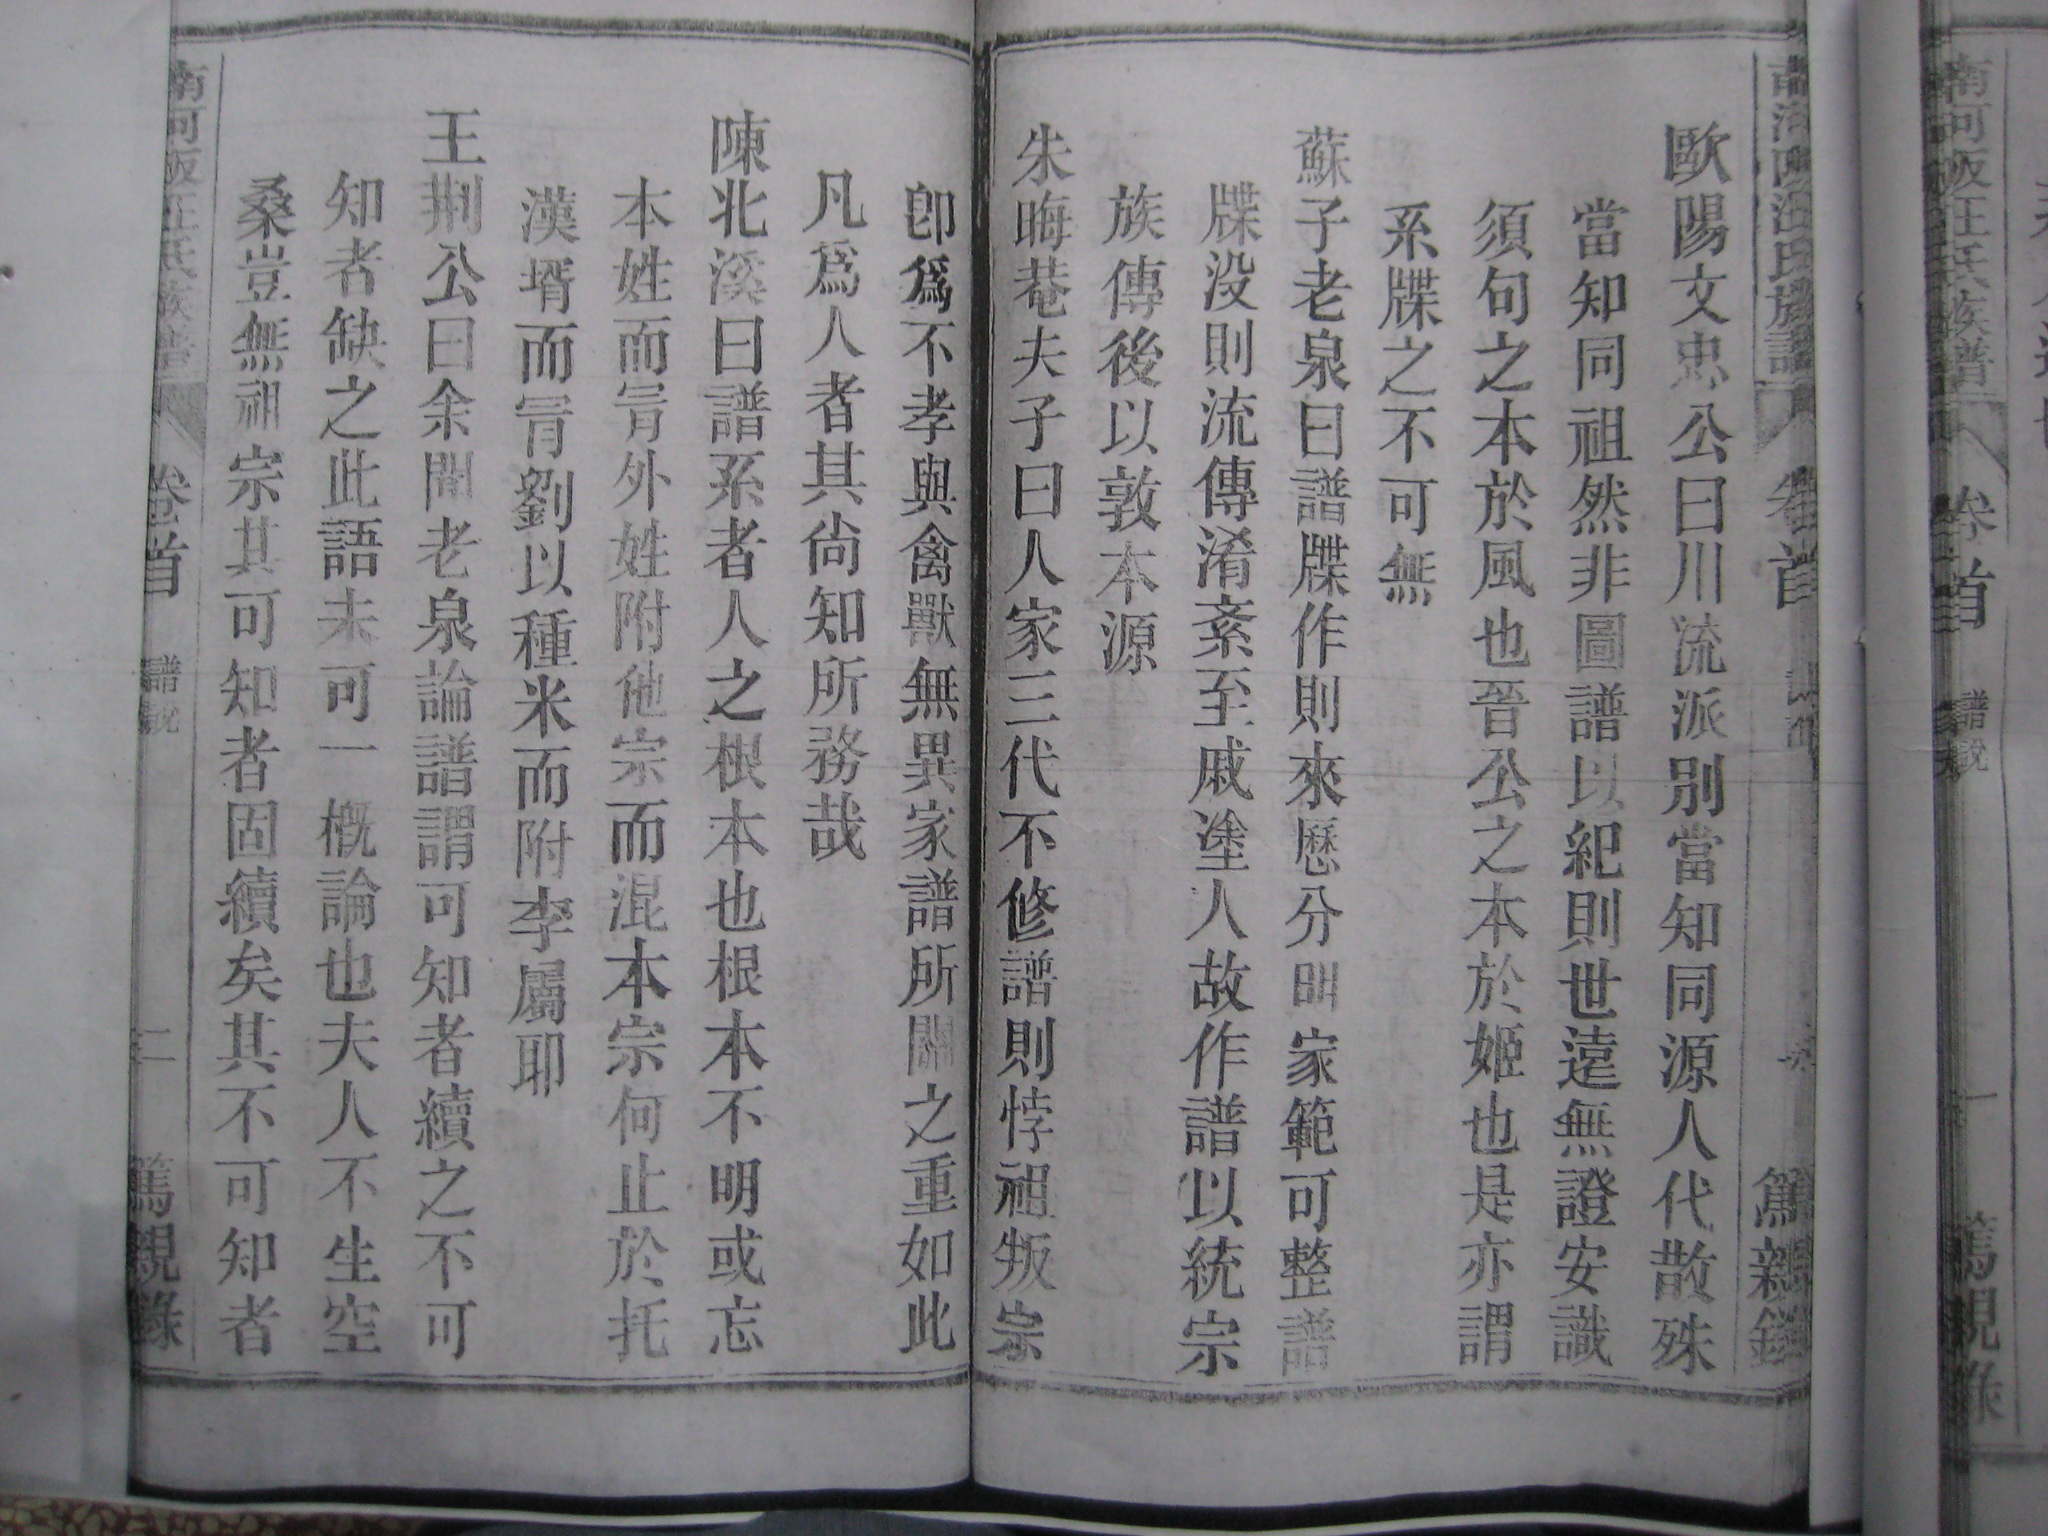 歐陽文忠公曰川流派別當知同源人代散殊
當知同祖然非圖譜以紀則世遠無證安識
須句之本於風也晉公之本於姬也是亦謂
系牒之不可無
蘇子老泉曰譜牒作則來歷分明家範可整譜
牒没則流傳淆紊至戚塗人故作譜以統宗
族傳後以敦本源
朱晦菴夫子曰人家三代不修譜則悖祖叛宗
卽爲不孝與禽獸無異家譜所關之重如此
凡爲人者其尙知所務哉
陳北溪曰譜系者人之根本也根本不明或忘
本姓而冐外姓附他宗而混本宗何止於托
漢壻而冐劉以種米而附李屬耶
王荆公曰余聞老泉論譜謂可知者續之不可
知者缺之此語未可一概論也夫人不生空
桑豈無祖宗其可知者固續矣其不可知者
南河 汪氏族譜
卷首
譜說
二
篤親錄
南河 汪氏族譜
卷首
譜說
一
篤親